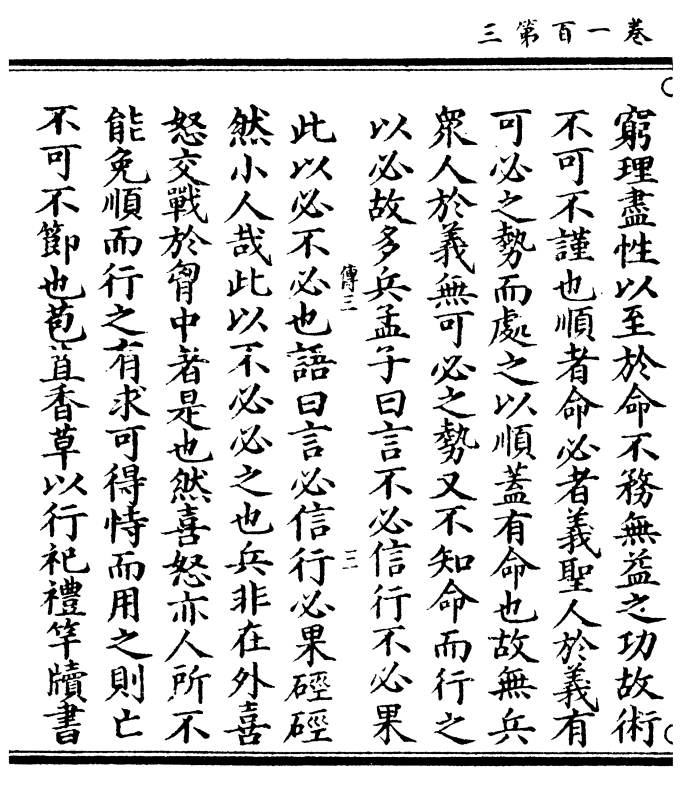 卷一百第三
窮理盡性以至於命不務無益之功故術
不可不謹也順者命必者義聖人於義有
可必之勢而處之以順蓋有命也故無兵
衆人於義無可必之勢又不知命而行之
以必故多兵孟子曰言不必信行不必果
傳三
三
此以必不必也語曰言必信行必果硜硜
然小人哉此以不必必之也兵非在外喜
怒交戰於胷中者是也然喜怒亦人所不
能免順而行之有求可得恃而用之則亡
不可不節也苞苴香草以行祀禮竿牘書